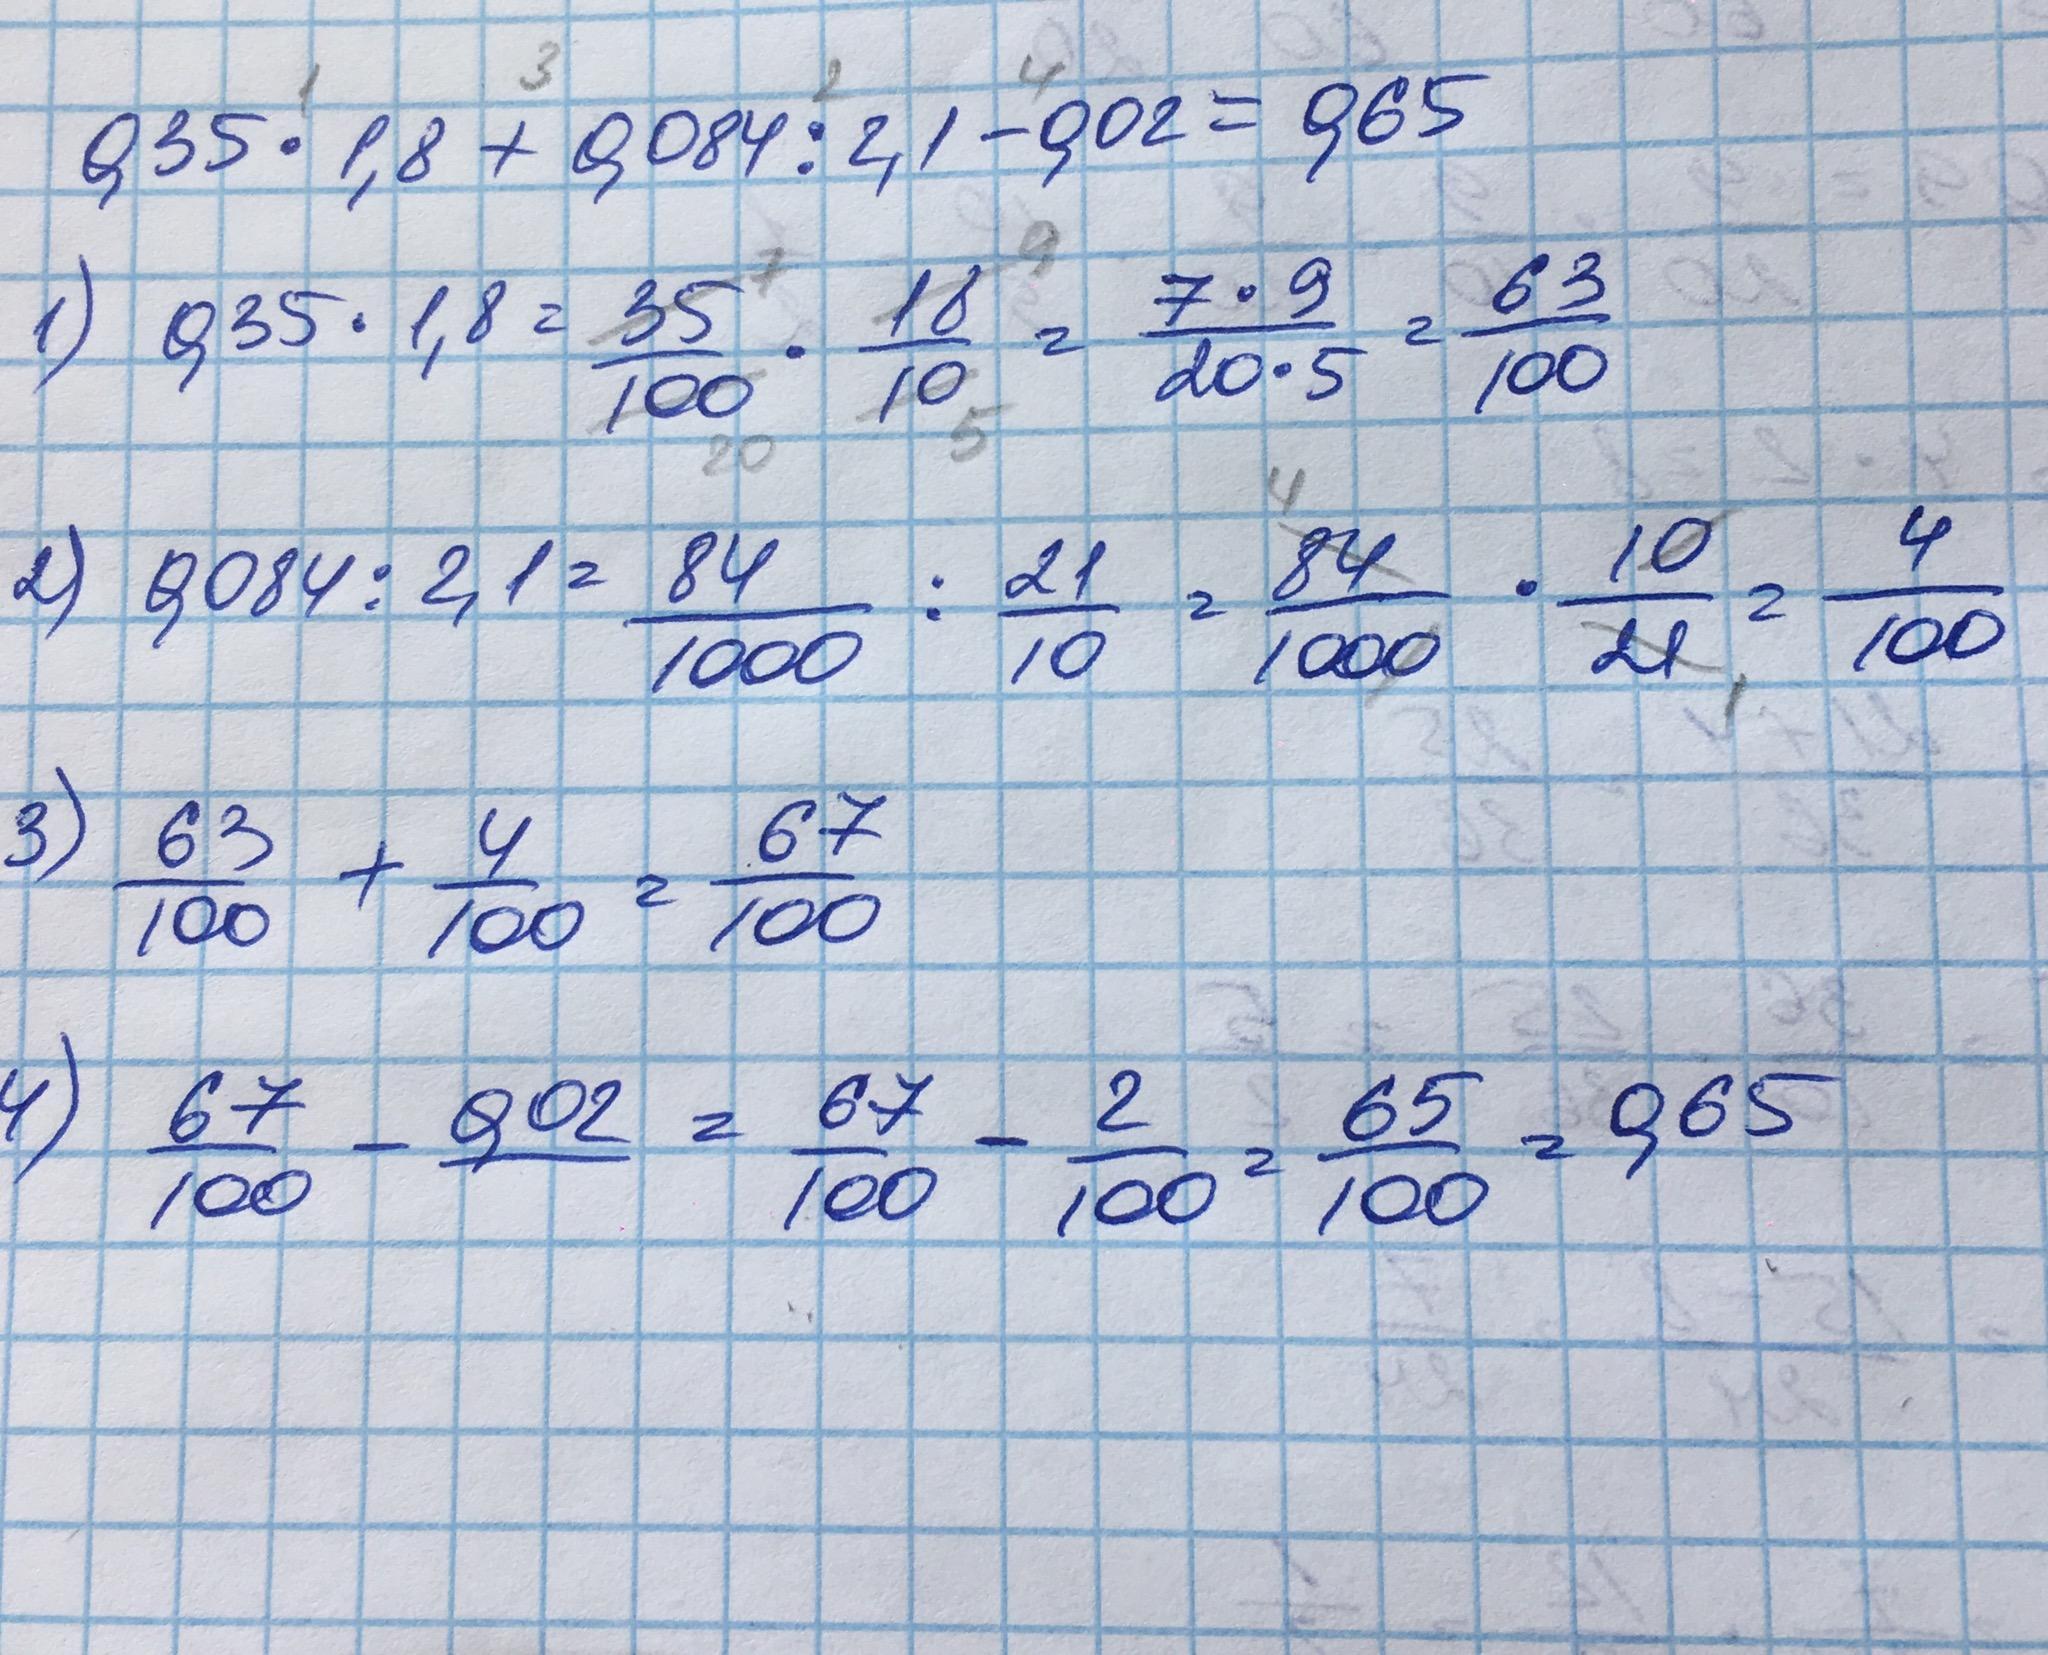 0,35 · 1,8 + 0,084 : 2,1 - 0,02 = 0,65
1) 0,35 · 1,8 = 35/100 · 18/10 = 7·9/20·5 = 63/100
2) 0,084 : 2,1 = 84/1000 : 21/10 = 84/1000 · 10/21 = 4/100
3) 63/100 + 4/100 = 67/100
4) 67/100 - 0,02 = 67/100 - 2/100 = 65/100 = 0,65